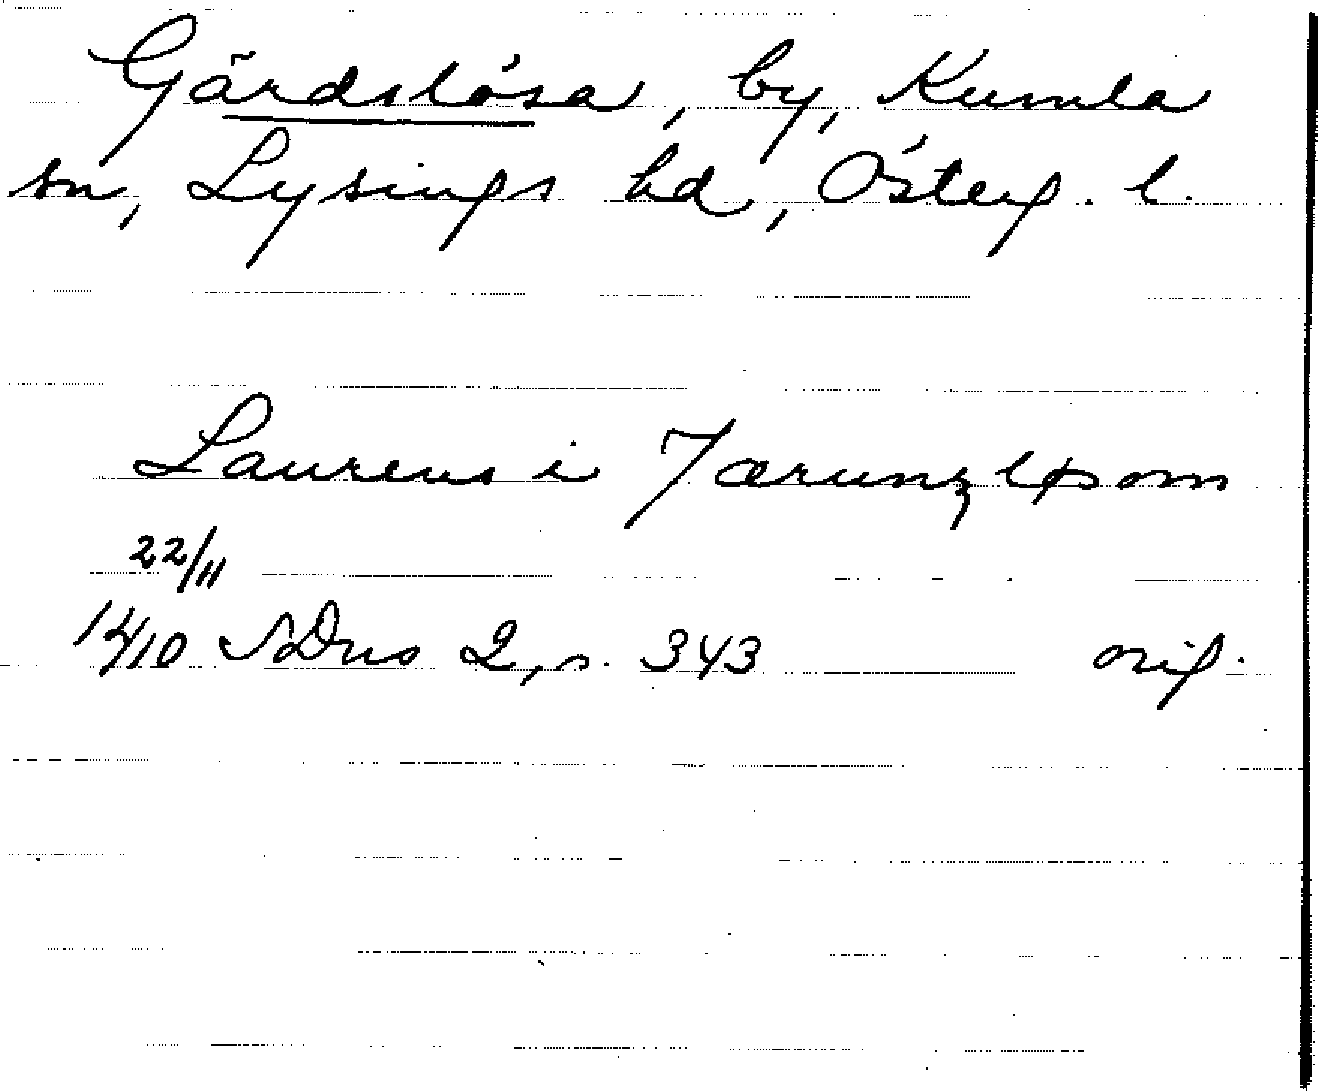 Gärdslösa, by, Kumla
sn, Lysings hd, Österg. l.
Laurens i Jærunzløsom
22/11
1410 SDns 2, s. 343 orig.